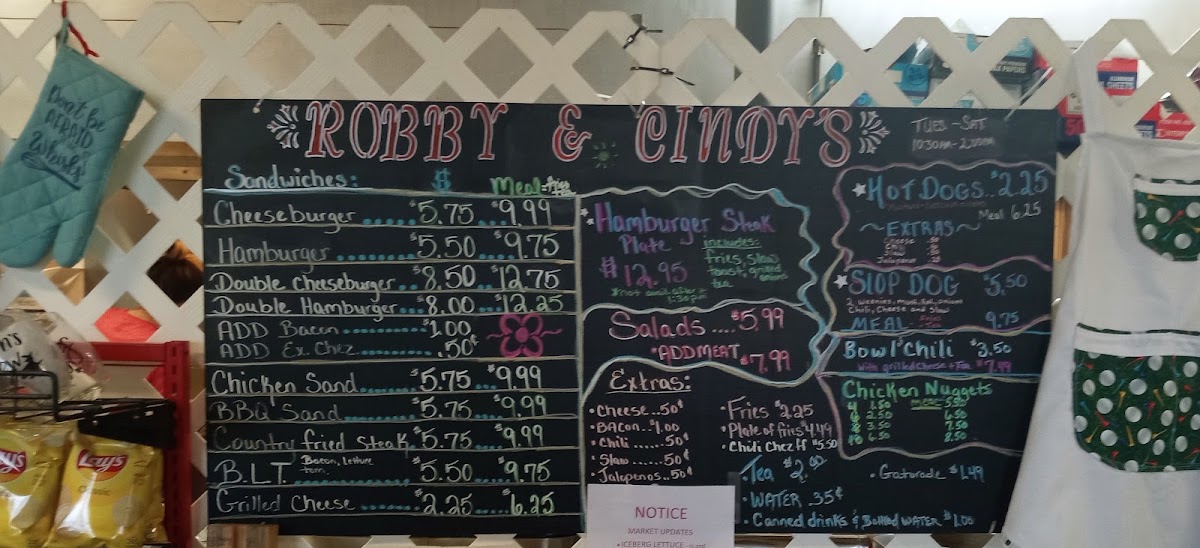 Don't be
AFRAID
Whisk!
ROBBY & CINDY'S
TUES - SAT
Sandwiches: $ Meal
Cheeseburger $5.75 $9.99
Hamburger $5.50 $9.75
Double cheeseburger $8.50 $12.75
Double Hamburger $8.00 $12.25
ADD Bacon $1.00
ADD Ex. Chez .50¢
Chicken Sand $5.75 $9.99
BBQ Sand $5.75 $9.99
Country fried Steak $5.75 $9.99
B.L.T. Bacon, Lettuce
tom. $5.50 $9.75
Grilled Cheese $2.25 $6.25
Hamburger Steak
Plate includes:
$12.95 fries, slaw
toast, grilled
onions
tea
Salads .... $5.99
•ADD MEAT $7.99
Extras:
•Cheese..50¢
•BACON..$1.00
•Chili......50¢
•Slaw......50¢
•Jalapenos..50¢
•Fries $2.25
•Plate of fries $4.49
•Chili Chez ff $5.50
•Tea $2.00
•WATER .35¢
•Canned drinks & Bottled WATER $1.00
•Gatorade $1.49
HOT DOGS..$2.25
Meal 6.25
~EXTRAS~
Cheese .50
Slaw .50
Jalapeno .50
SLOP DOG $5.50
Chili, Cheese and Slaw
MEAL 9.75
Bowl Chili $3.50
With grilled cheese + Tea $7.99
Chicken Nuggets
4 1.50 5.50
6 2.50 6.50
8 3.50 7.50
10 6.50 8.50
NOTICE
MARKET UPDATES
•ICEBERG LETTUCE
Lay's
Lay's
Classic